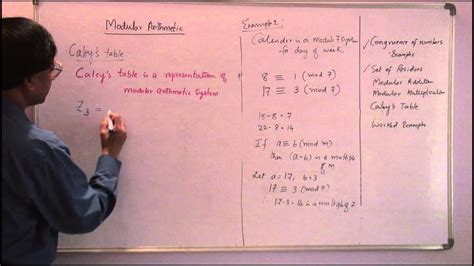 Modular Arithmetic
Caley's table
Caley's table is a representation of
modular arithmetic system
Z3 =
Example 1:
Calender is a modulo 7 system
for day of week
8 ≡ 1 (mod 7)
17 ≡ 3 (mod 7)
15-8=7
22-8=14
If a ≡ b (mod m)
then (a-b) is a multiple
of m
Let a=17, b=3
17 ≡ 3 (mod 7)
∴ 17-3=14 is a multiple of 7
Congruence of numbers
-Examples
Set of Residues
Modular Addition
Modular Multiplication
Caley's Table
Worked Examples